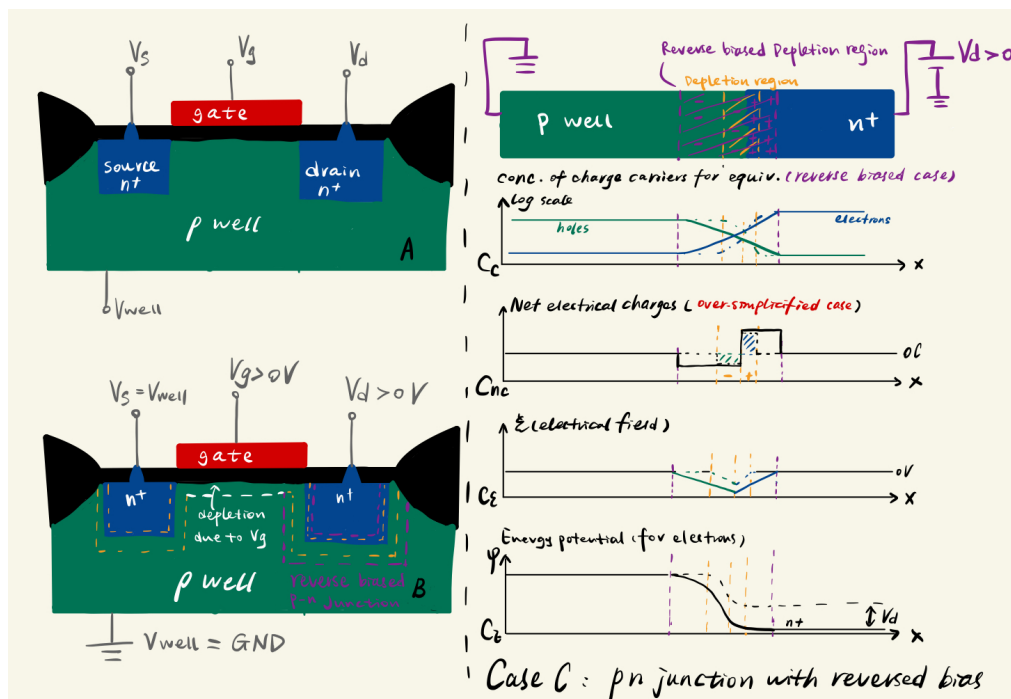 Vs
Vg
Vd
gate
source
n+
drain
n+
p well
A
Vwell
Vs = Vwell
Vg>0V
Vd>0V
gate
n+
n+
depletion
due to Vg
p well
reverse biased
P-n Junction
B
Vwell = GND
Reverse biased Depletion region
Depletion region
Vd>0
p well
n+
conc. of charge carriers for equiv. (reverse biased case)
Log scale
holes
electrons
Cc
x
Net electrical charges (over-simplicified case)
0C
- +
Cnc
x
ξ (electrical field)
0V
Cξ
x
Energy potential (for elestrons)
φ
n+
Vd
x
Case C: pn junction with reversed bias